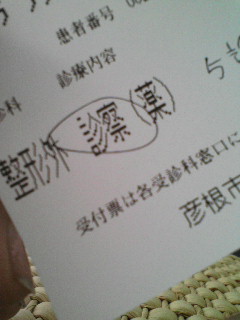 患者番号 00
診療内容
診科
整形外 診察(薬)
受付票は各受診科窓口に
彦根市